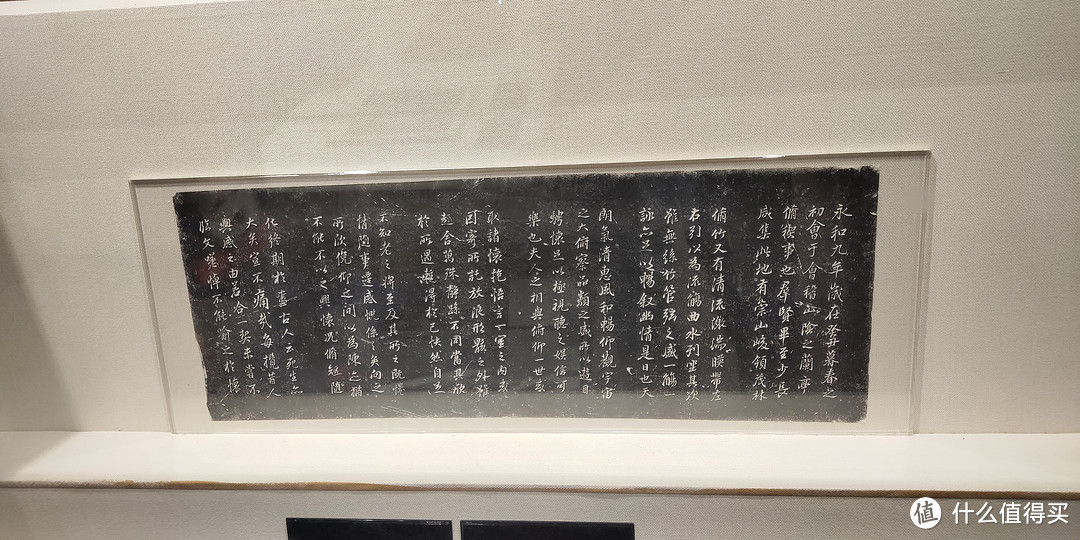 永和九年歲在癸丑暮春之
初會于會稽山陰之蘭亭
脩禊事也羣賢畢至少長
咸集此地有崇山峻領茂林
脩竹又有清流激湍暎帶左
右引以為流觴曲水列坐其次
雖無絲竹管弦之盛一觴一
詠亦足以暢敘幽情是日也天
朗氣清惠風和暢仰觀宇宙
之大俯察品類之盛所以遊目
騁懷足以極視聽之娛信可
樂也夫人之相與俯仰一世或
取諸懷抱悟言一室之內或
因寄所託放浪形骸之外雖
趣舍萬殊靜躁不同當其欣
於所遇蹔得於己怏然自足
不知老之將至及其所之既惓
情隨事遷感慨係之矣向之
所欣俛仰之間以為陳迹猶
不能不以之興懷況脩短隨
化終期於盡古人云死生亦
大矣豈不痛哉每攬昔人
興感之由若合一契未嘗不
臨文嗟悼不能喻之於懷
值 什么值得买